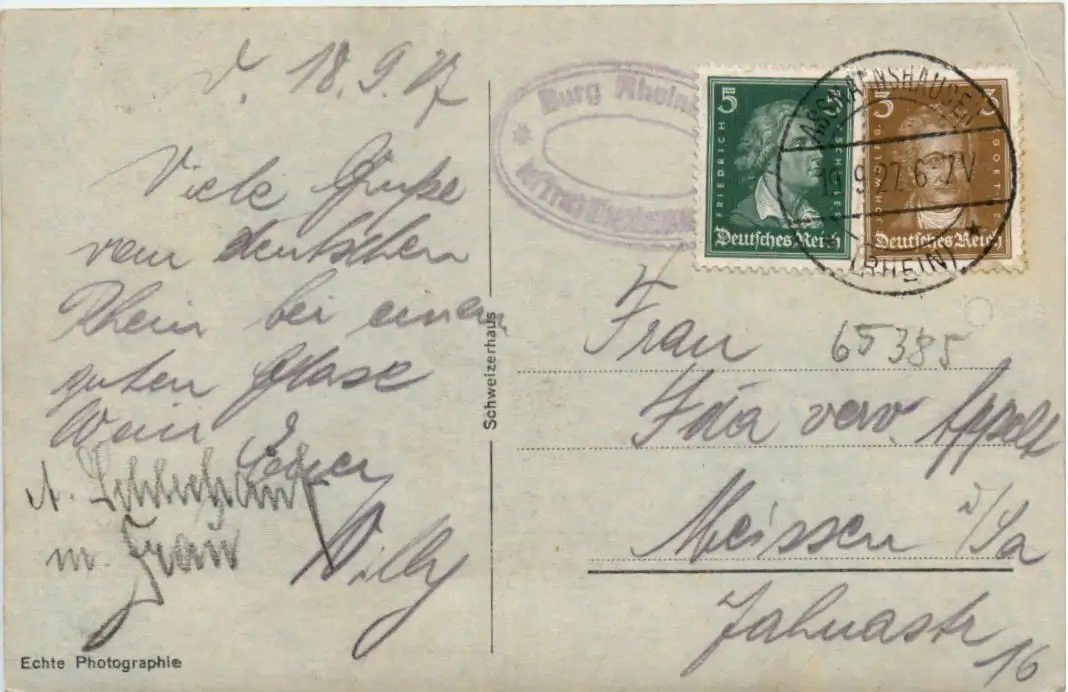 d. 18.9.27
Viele Grüße
vom deutschen
Rhein bei einem
guten Glase
Wein Euer
Willy
m. Frau
Echte Photographie
Schweizerhaus
Burg Rhein
5 5
FRIEDRICH
Deutsches Reich
3 3
GOETHE
Deutsches Reich
ASSMANNSHAUSEN
9.27.6-7V
(RHEIN)
Frau
65385
Ida verw. Appelt
Meissen i/Sa
Jahnastr
16